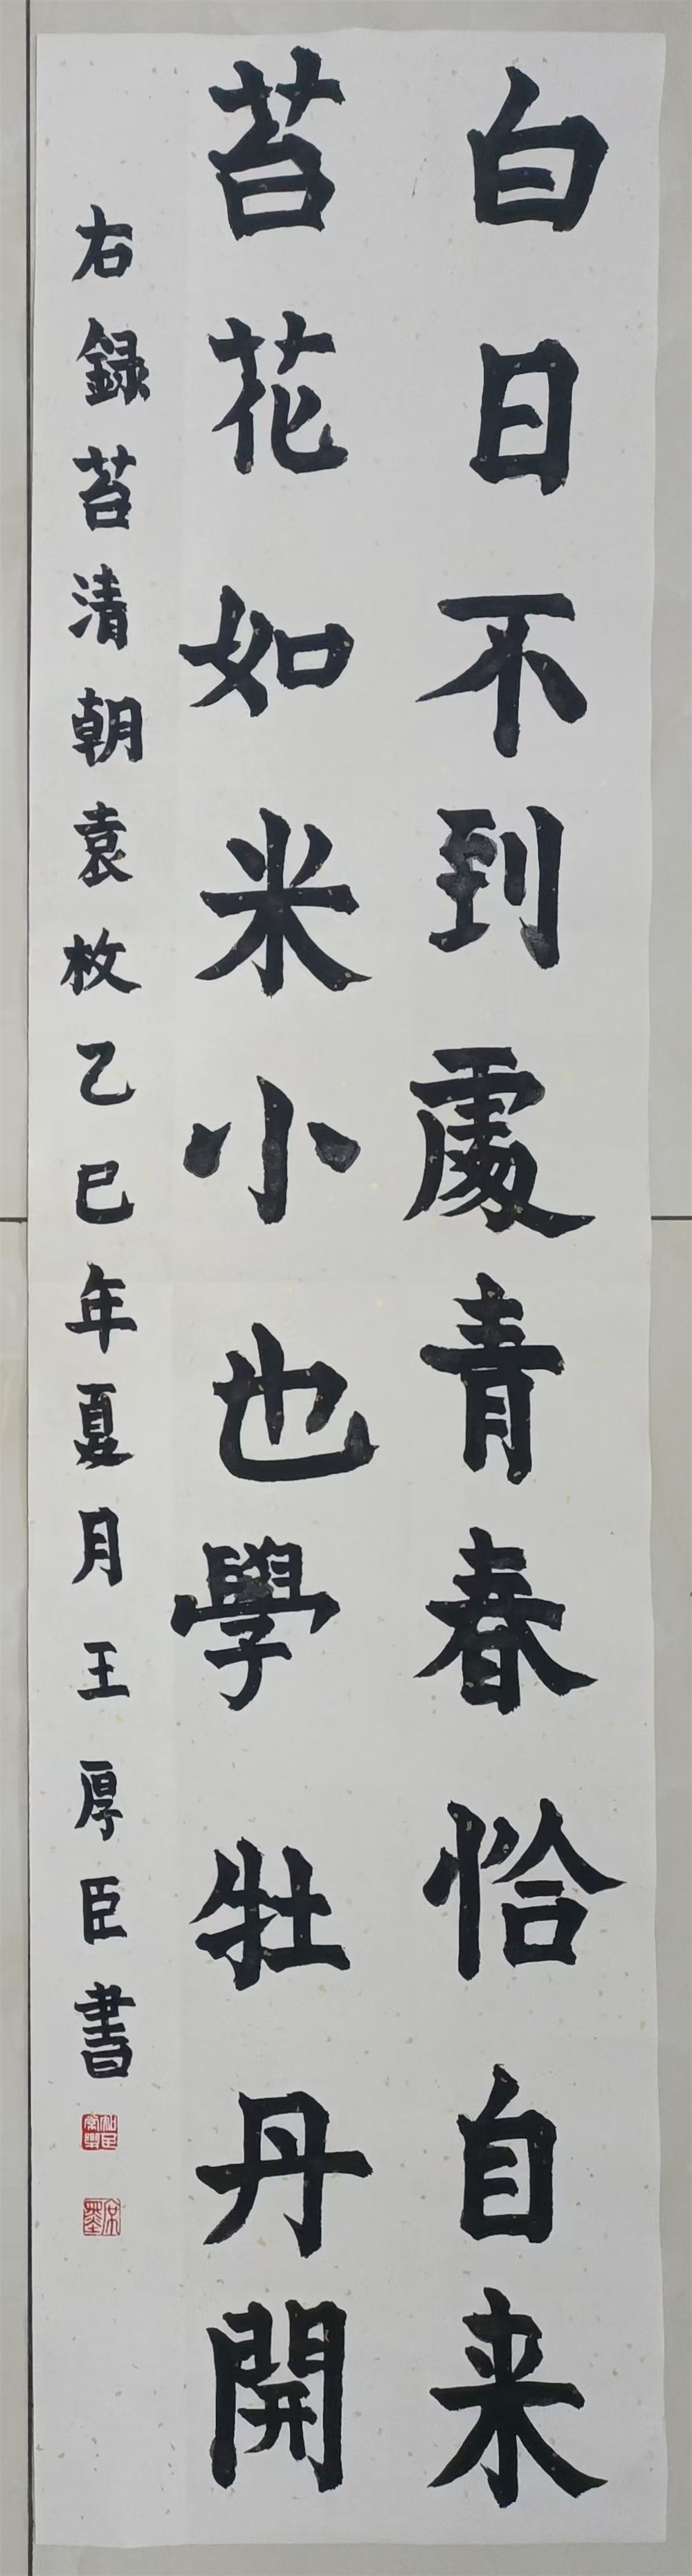 白日不到處青春恰自来
苔花如米小也學牡丹開
右録苔清朝袁枚乙巳年夏月王厚臣書